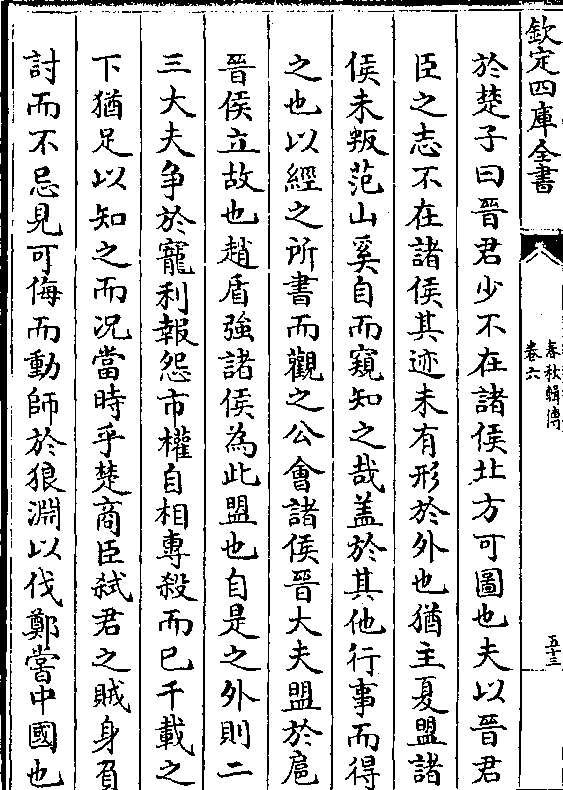 欽定四庫全書
春秋輯傳
卷六
五十三
於楚子曰晉君少不在諸侯北方可圖也夫以晉君
臣之志不在諸侯其迹未有形於外也猶主夏盟諸
侯未叛范山奚自而窺知之哉盖於其他行事而得
之也以經之所書而觀之公會諸侯晉大夫盟於扈
晉侯立故也趙盾強諸侯為此盟也自是之外則二
三大夫争於寵利報怨市權自相專殺而已千載之
下猶足以知之而况當時乎楚商臣弑君之賊身負
討而不忌見可侮而動師於狼淵以伐鄭嘗中國也